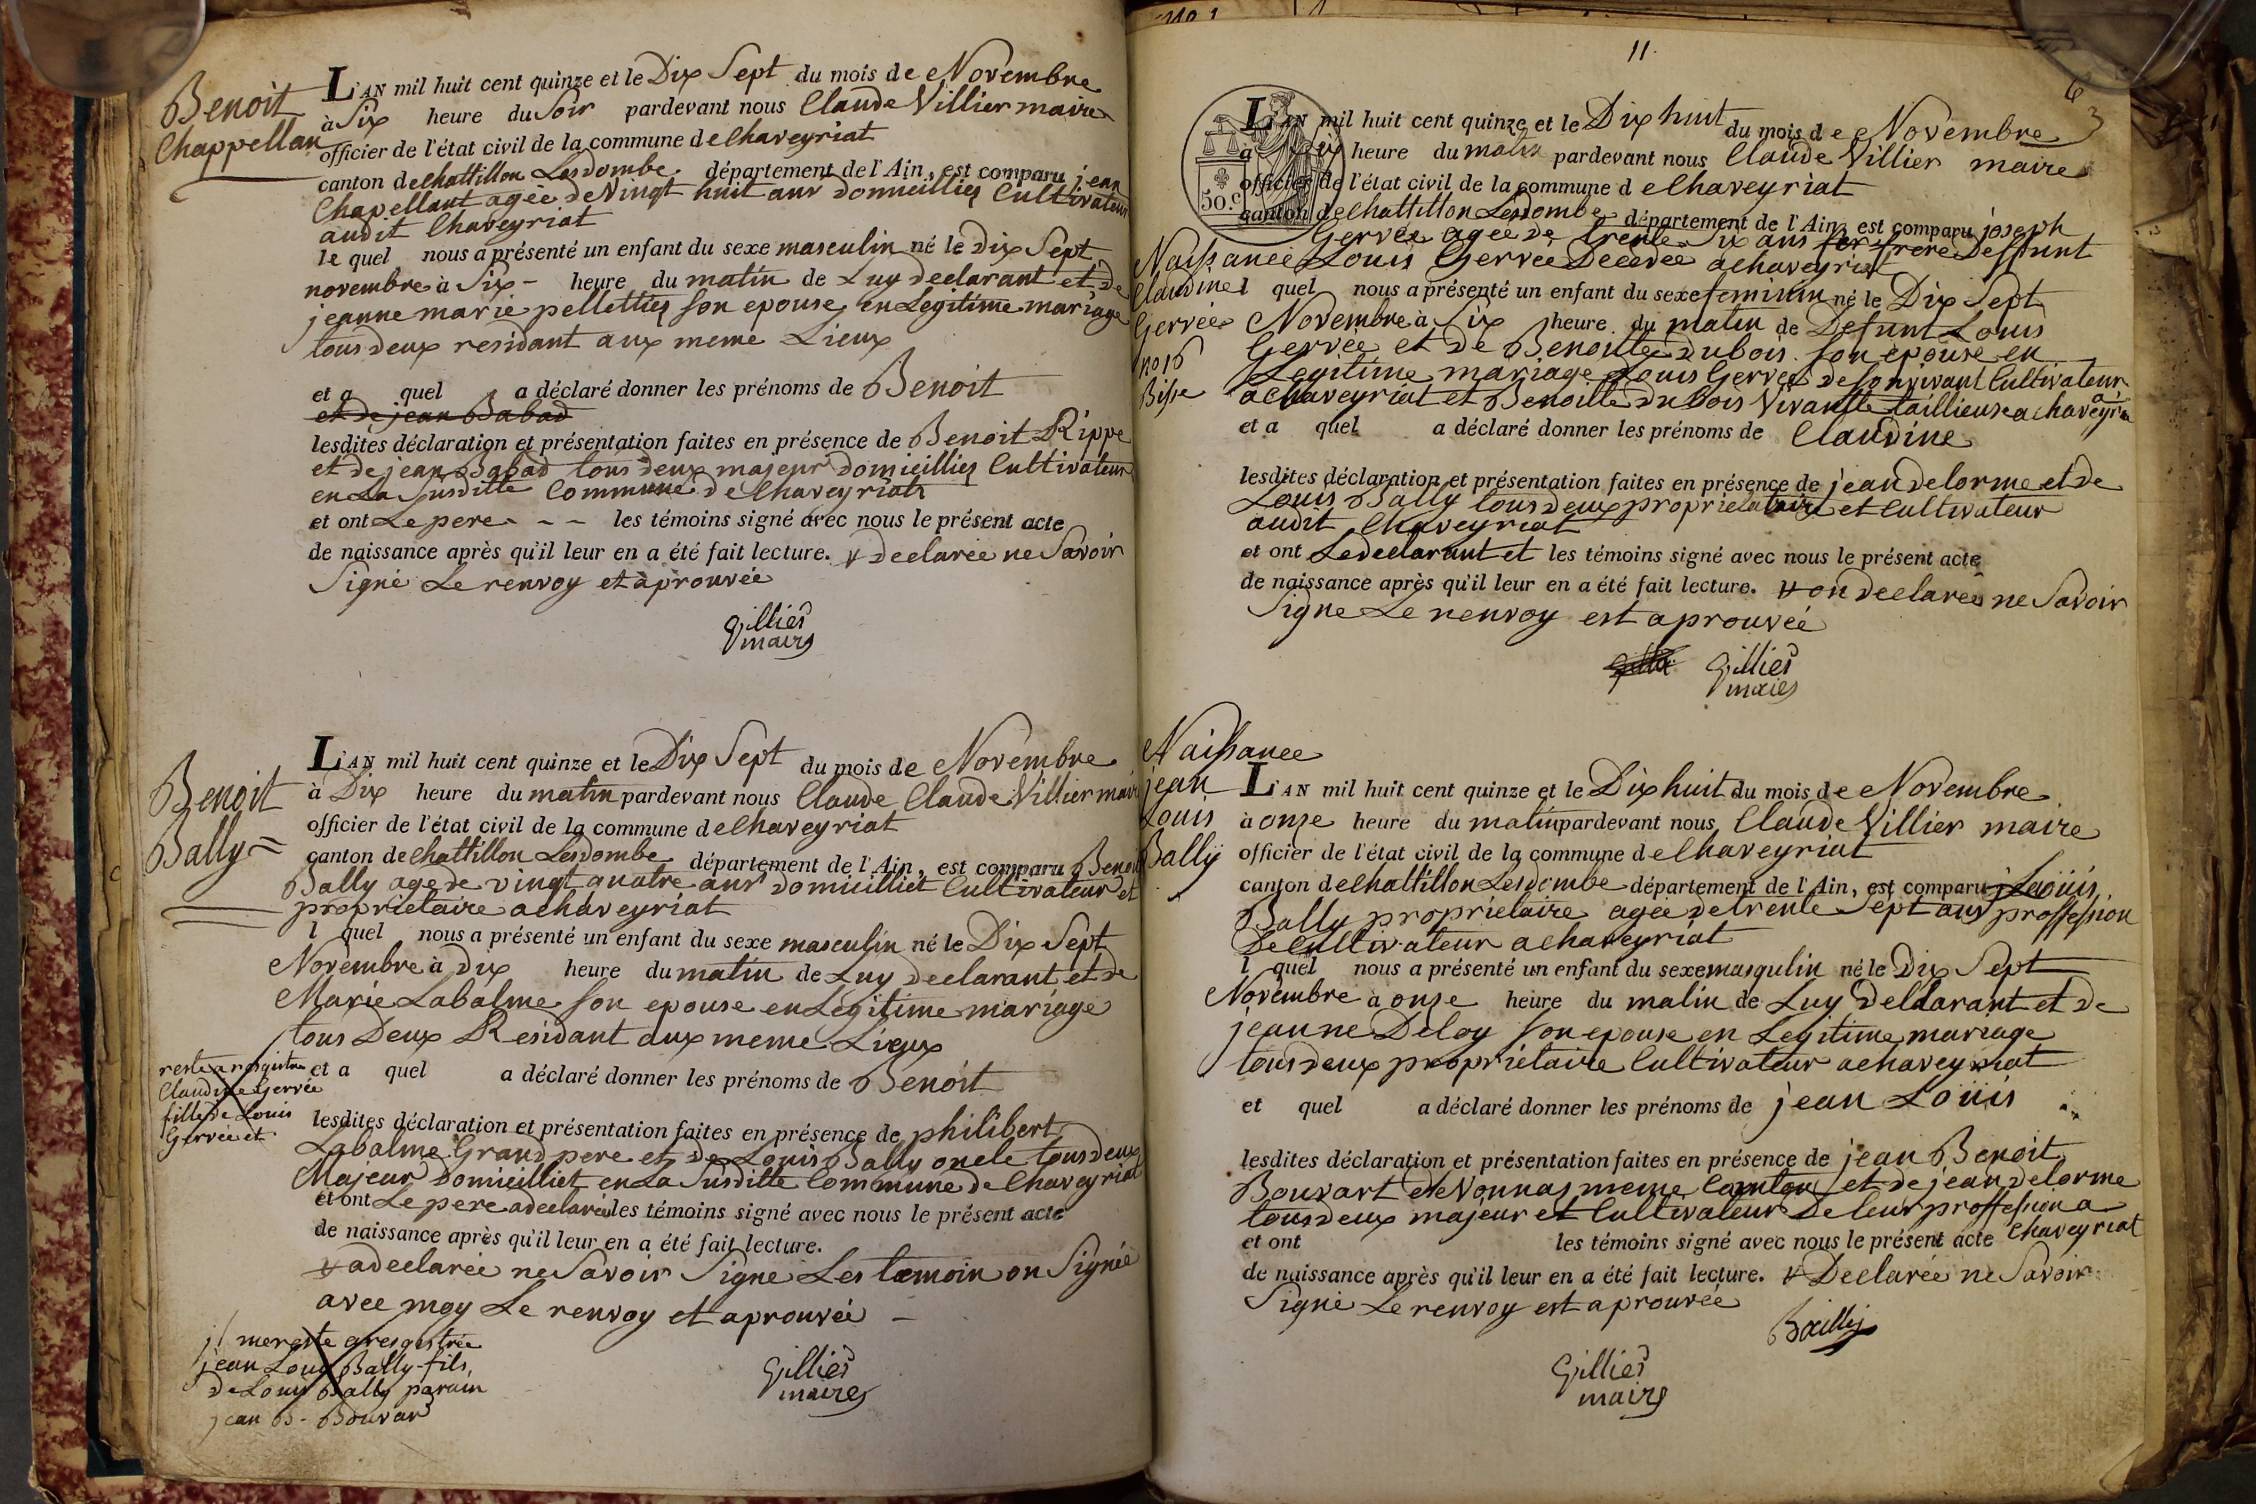 Benoit
Chappellan
L'AN mil huit cent quinze et le Dix Sept du mois de Novembre
à Six heure du Soir pardevant nous Claude Villier maire
officier de l'état civil de la commune de Chaveyriat
canton de Chattillon Lesdombe département de l'Ain, est comparu jean
Chapellant agée de Vingt huit ans domicilliez Cultivateur
audit Chaveyriat
le quel nous a présenté un enfant du sexe masculin né le Dix Sept
novembre à Six - heure du matin de Luy declarant et de
jeanne marie pellettier son epouse en Legitime mariage
tous deux residant aux meme Lieux
et a quel a déclaré donner les prénoms de Benoit
et de jean Babad
lesdites déclaration et présentation faites en présence de Benoit Rippe
et de jean Babad tous deux majeur domicilliez Cultivateur
en La Susditte Commune de Chaveyriat
et ont Le pere - - - les témoins signé avec nous le présent acte
de naissance après qu'il leur en a été fait lecture. Declarée ne Savoir
Signé Le renvoy et aprouvée
Villier
maire
Benoit
Bally =
L'AN mil huit cent quinze et le Dix Sept du mois de Novembre
à Dix heure du matin pardevant nous Claude Claude Villier maire
officier de l'état civil de la commune de Chaveyriat
canton de Chattillon Lesdombe département de l'Ain, est comparu Benoit
Bally age de vingt quatre ans domicilliet Cultivateur et
proprietaire a chaveyriat
l quel nous a présenté un enfant du sexe masculin né le Dix Sept
Novembre à Dix heure du matin de Luy declarant et de
Marie Labalme Son epouse en Légitime mariage
tous Deux Residant aux meme Lieux
reste a registre
Claudine Gervée
fille de Louis
Gervée et
et a quel a déclaré donner les prénoms de Benoit
lesdites déclaration et présentation faites en présence de philibert
Labalme Grand pere et de Louis Bally oncle tous deux
Majeur Domicilliet en La Susditte Commune de Chaveyriat
et ont Le pere a declarée les témoins signé avec nous le présent acte
de naissance après qu'il leur en a été fait lecture.
a declarée ne Savoir Signé Les temoin on Signée
avec moy Le renvoy et aprouvée -
il me reste a resgistrée
jean Louis Bally fils
de Louis Bally parain
jean B. Bouvar
Villier
maire
11.
6
3
50.c
L'AN mil huit cent quinze et le Dix huit du mois de Novembre
à Dix heure du matin pardevant nous Claude Villier maire
officier de l'état civil de la commune de Chaveyriat
canton de Chattillon Lesdombe département de l'Ain, est comparu joseph
Gervée agée de trente Six ans frere Deffunt
Louis Gervée Decedée a chaveyriat
Naissance
Claudine
Gervée
no 16
Bisse
l quel nous a présenté un enfant du sexe feminin né le Dix Sept
Novembre à Six heure du matin de Defunt Louis
Gervée et de Benoitte dubois Son epouse en
Legitime mariage Louis Gervée de Son vivant Cultivateur
a Chaveyriat et Benoitte dubois Vivante taillieuse a chaveyria
et a quel a déclaré donner les prénoms de Claudine
lesdites déclaration et présentation faites en présence de jean delorme et de
Louis Bally tous deux proprietaire et Cultivateur
audit Chaveyriat
et ont Le declarant et les témoins signé avec nous le présent acte
de naissance après qu'il leur en a été fait lecture. on declarée ne Savoir
Signe Le renvoy est aprouvée
Villier
maire
Naissance
jean
Louis
Bally
L'AN mil huit cent quinze et le Dix huit du mois de Novembre
à onze heure du matin pardevant nous Claude Villier maire
officier de l'état civil de la commune de Chaveyriat
canton de Chattillon Lesdombe département de l'Ain, est comparu Louis
Bally proprietaire agée de trente Sept ans proffession
De Cultivateur a chaveyriat
l quel nous a présenté un enfant du sexe masqulin né le Dix Sept
Novembre à onze heure du matin de Luy Dellarant et de
jeanne Deloy Son epouse en Legitime mariage
tous deux proprietaire Cultivateur a chaveyriat
et quel a déclaré donner les prénoms de jean Loüis
lesdites déclaration et présentation faites en présence de jean Benoit
Bouvart de Vonnas meme Canton et de jean delorme
tous deux majeur et Cultivateur De leur proffession a
Chaveyriat
et ont les témoins signé avec nous le présent acte
de naissance après qu'il leur en a été fait lecture. Declarée ne Savoir
Signé Le renvoy est aprouvée
Bailly
Villier
maire